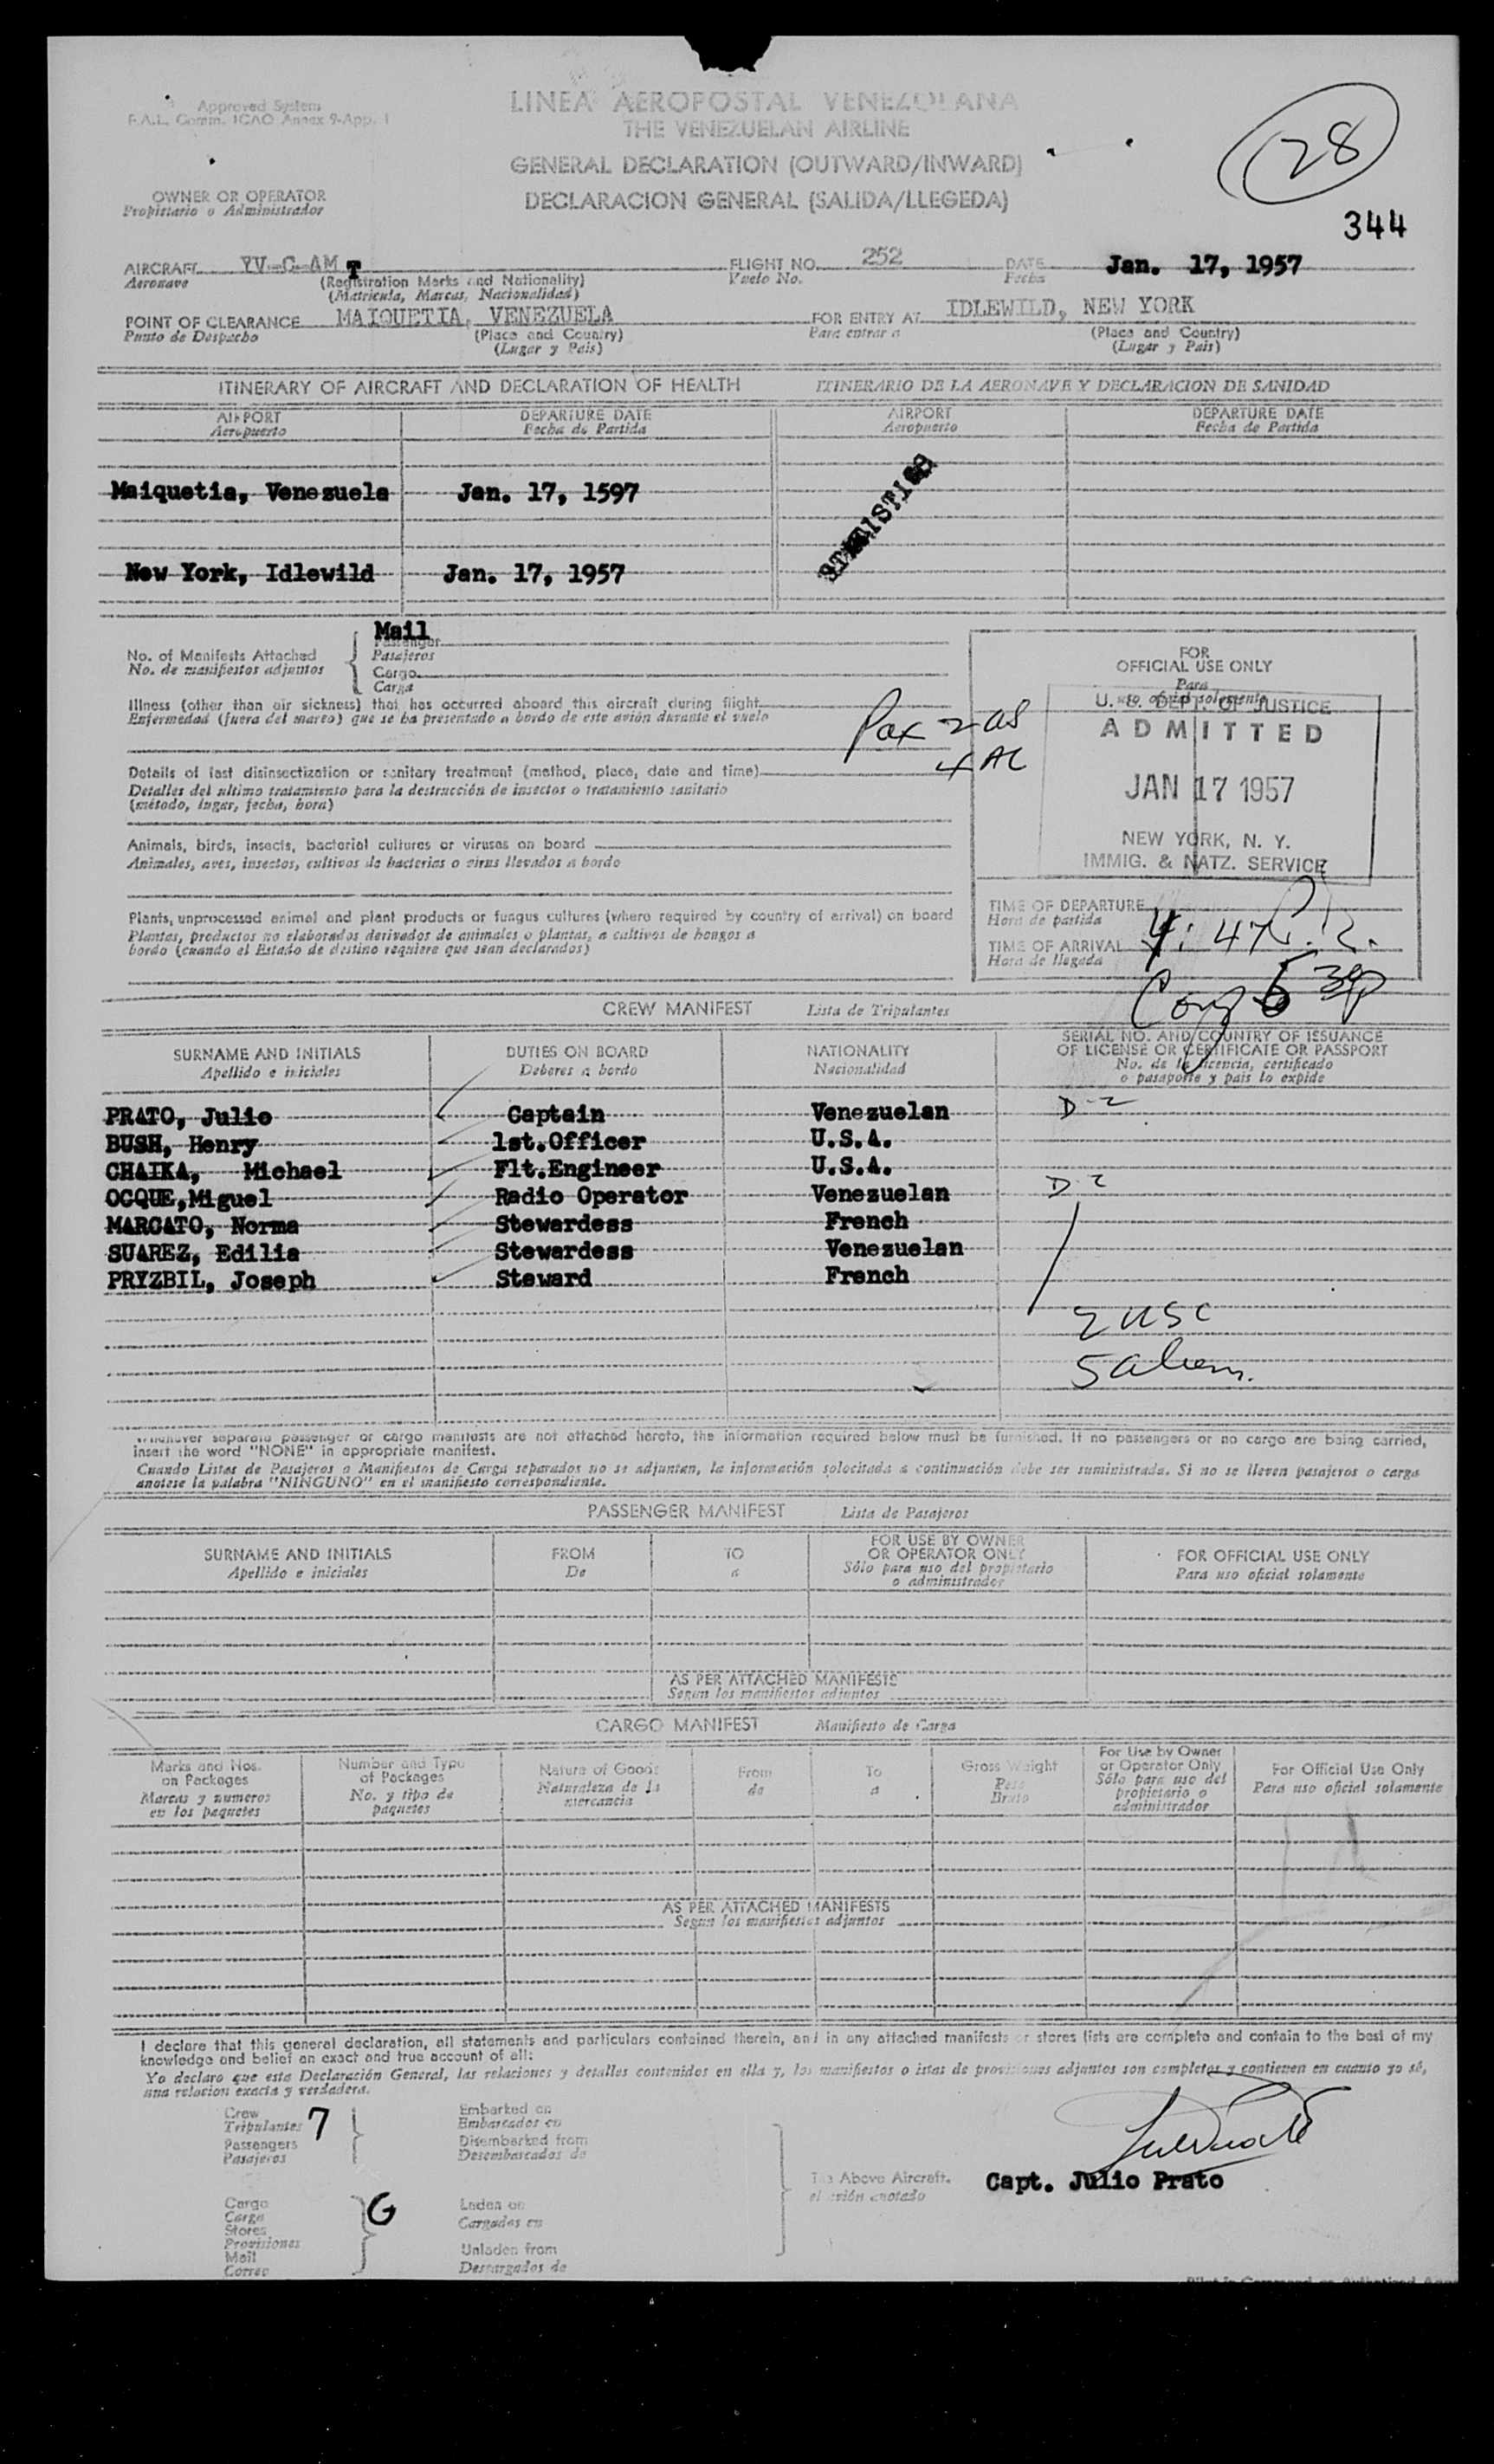 Approved System
F.A.L. Comm. ICAO Annex 9-App. 1
LINEA AEROPOSTAL VENEZOLANA
THE VENEZUELAN AIRLINE
GENERAL DECLARATION (OUTWARD/INWARD)
DECLARACION GENERAL (SALIDA/LLEGEDA)
28
344
OWNER OR OPERATOR
Propietario o Administrador
AIRCRAFT YV-C-AMT FLIGHT NO. 252 DATE Jan. 17, 1957
Aeronave (Registration Marks and Nationality) Vuelo No. Fecha
(Matricula, Marcas, Nacionalidad)
POINT OF CLEARANCE MAIQUETIA, VENEZUELA FOR ENTRY AT IDLEWILD, NEW YORK
Punto de Despacho (Place and Country) Para entrar a (Place and Country)
(Lugar y Pais) (Lugar y Pais)
ITINERARY OF AIRCRAFT AND DECLARATION OF HEALTH ITINERARIO DE LA AERONAVE Y DECLARACION DE SANIDAD
AIRPORT DEPARTURE DATE AIRPORT DEPARTURE DATE
Aeropuerto Fecha de Partida Aeropuerto Fecha de Partida
Maiquetia, Venezuela Jan. 17, 1597
New York, Idlewild Jan. 17, 1957
Mail
Passenger
No. of Manifests Attached Pasajeros
No. de manifiestos adjuntos Cargo
Carga
Illness (other than air sickness) that has occurred aboard this aircraft during flight
Enfermedad (fuera del mareo) que se ha presentado a bordo de este avión durante el vuelo
Pax 2 US
4 AL
Details of last disinsectization or sanitary treatment (method, place, date and time)
Detalles del ultimo tratamiento para la destrucción de insectos o tratamiento sanitario
(método, lugar, fecha, hora)
Animals, birds, insects, bacterial cultures or viruses on board
Animales, aves, insectos, cultivos de bacterias o virus llevados a bordo
Plants, unprocessed animal and plant products or fungus cultures (where required by country of arrival) on board
Plantas, productos no elaborados derivados de animales o plantas, a cultivos de hongos a
bordo (cuando el Estado de destino requiere que sean declarados)
FOR
OFFICIAL USE ONLY
Para
uso oficial solamente
U. S. DEPT. OF JUSTICE
ADMITTED
JAN 17 1957
NEW YORK, N. Y.
IMMIG. & NATZ. SERVICE
TIME OF DEPARTURE
Hora de partida
TIME OF ARRIVAL 4:47
Hora de llegada
CREW MANIFEST Lista de Tripulantes
SURNAME AND INITIALS DUTIES ON BOARD NATIONALITY SERIAL NO. AND COUNTRY OF ISSUANCE
OF LICENSE OR CERTIFICATE OR PASSPORT
Apellido e iniciales Deberes a bordo Nacionalidad No. de la licencia, certificado
o pasaporte y pais lo expide
PRATO, Julio Captain Venezuelan D-2
BUSH, Henry 1st.Officer U.S.A.
CHAIKA, Michael Flt.Engineer U.S.A.
OCQUE,Miguel Radio Operator Venezuelan D-2
MARCATO, Norma Stewardess French
SUAREZ, Edilia Stewardess Venezuelan
PRYZBIL, Joseph Steward French
2 USC
5 aliens.
Whenever separate passenger or cargo manifests are not attached hereto, the information required below must be furnished. If no passengers or no cargo are being carried,
insert the word "NONE" in appropriate manifest.
Cuando Listas de Pasajeros o Manifiestos de Carga separados no se adjuntan, la información solocitada a continuación debe ser suministrada. Si no se lleven pasajeros o carga
anotese la palabra "NINGUNO" en el manifiesto correspondiente.
PASSENGER MANIFEST Lista de Pasajeros
SURNAME AND INITIALS FROM TO FOR USE BY OWNER
OR OPERATOR ONLY FOR OFFICIAL USE ONLY
Apellido e iniciales De a Sólo para uso del propietario
o administrador Para uso oficial solamente
AS PER ATTACHED MANIFESTS
Segun los manifiestos adjuntos
CARGO MANIFEST Manifiesto de Carga
Marks and Nos. on Packages Number and Type of Packages Nature of Goods From To Gross Weight For Use by Owner or Operator Only For Official Use Only
Marcas y numeros en los paquetes No. y tipo de paquetes Naturaleza de la mercancia de a Peso Bruto Sólo para uso del propietario o administrador Para uso oficial solamente
AS PER ATTACHED MANIFESTS
Segun los manifiestos adjuntos
I declare that this general declaration, all statements and particulars contained therein, and in any attached manifests or stores lists are complete and contain to the best of my
knowledge and belief an exact and true account of all:
Yo declaro que esta Declaración General, las relaciones y detalles contenidos en ella y, los manifiestos o istas de provisiones adjuntos son completos y contienen en cuanto yo sé,
una relacion exacta y verdadera.
Crew Embarked on
Tripulantes 7 Embarcados en
Passengers Disembarked from
Pasajeros Desembarcados de
The Above Aircraft. Capt. Julio Prato
el avión anotado
Cargo G Laden on
Carga Cargados en
Stores
Provisiones Unladen from
Mail
Correo Descargados de